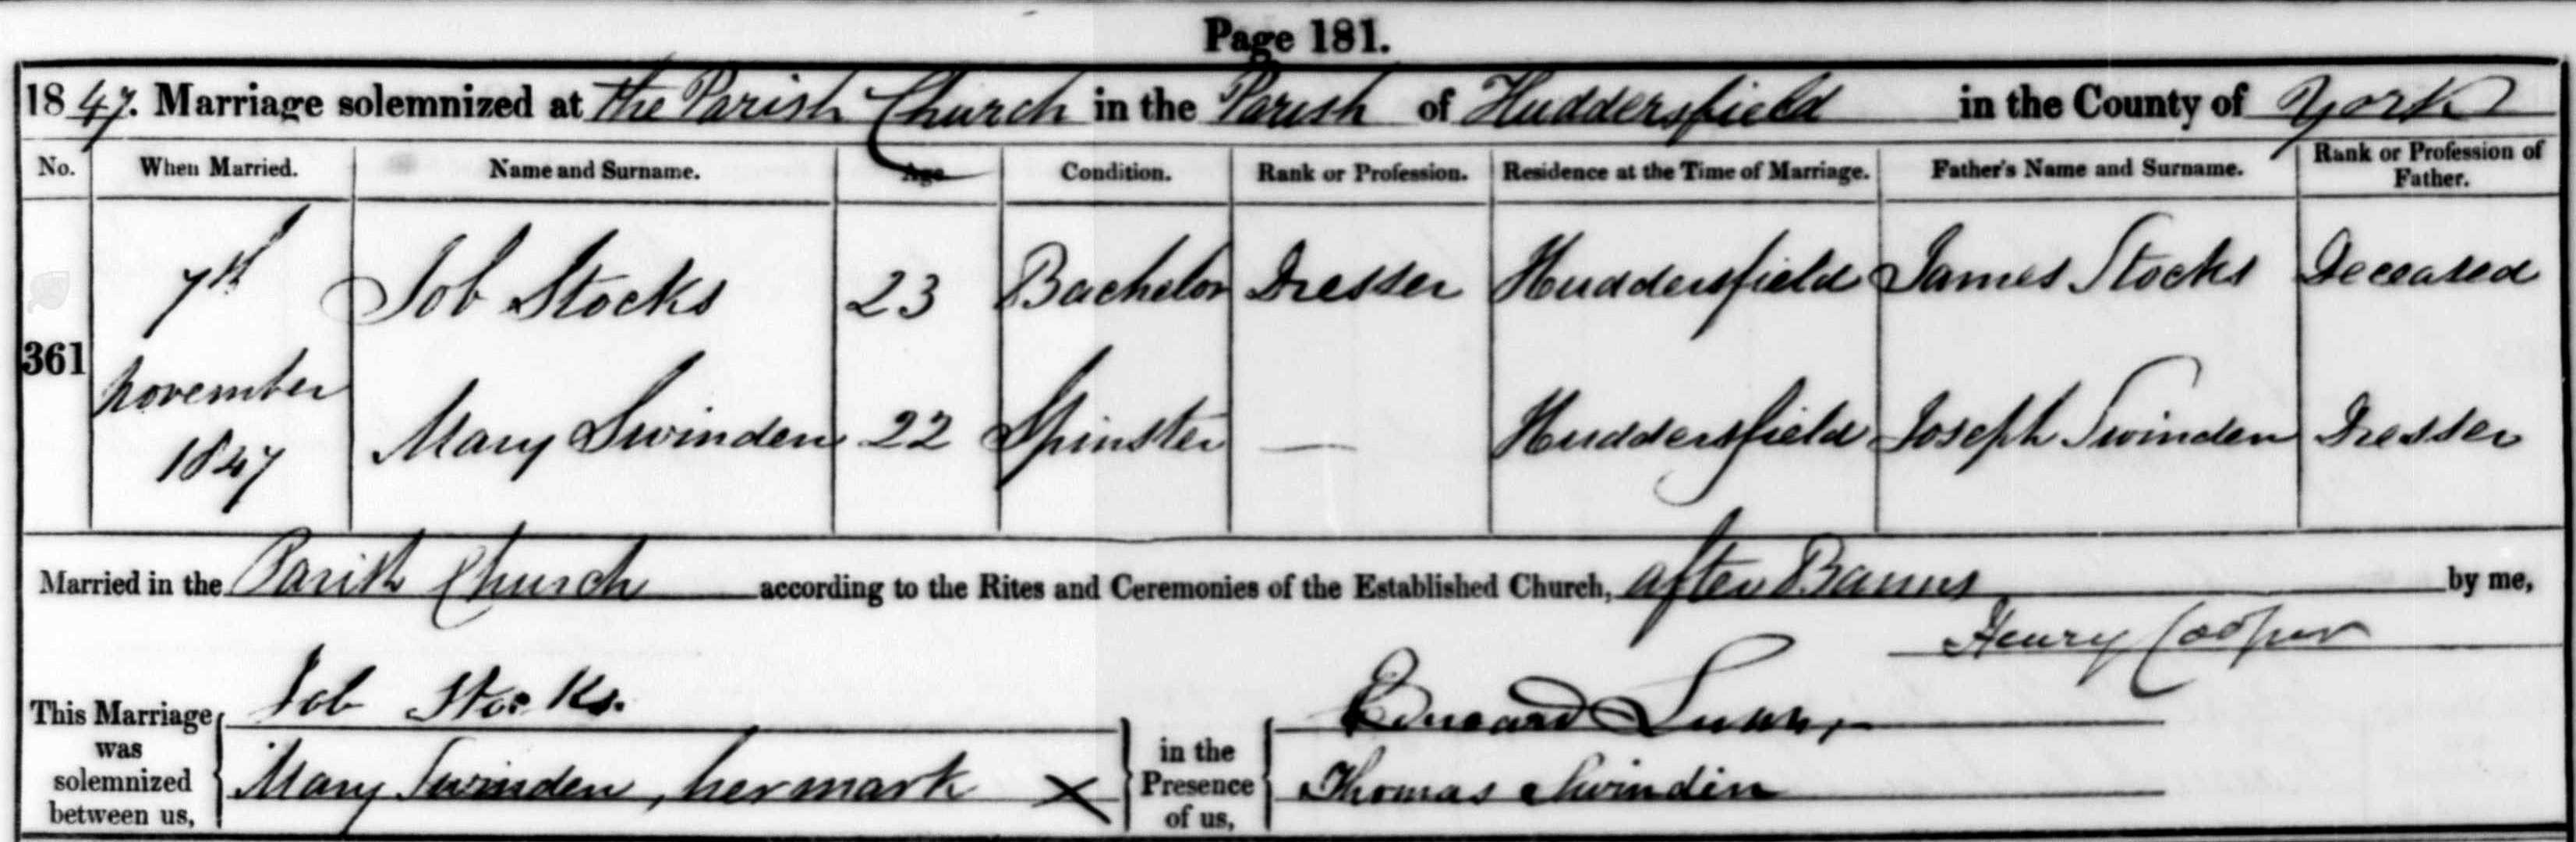 Page 181.
1847. Marriage solemnized at the Parish Church in the Parish of Huddersfield in the County of York
No. When Married. Name and Surname. Age Condition. Rank or Profession. Residence at the Time of Marriage. Father's Name and Surname. Rank or Profession of Father.
361 7th November 1847
Job Stocks 23 Bachelor Dresser Huddersfield James Stocks Deceased
Mary Swinden 22 Spinster — Huddersfield Joseph Swinden Dresser
Married in the Parish Church according to the Rites and Ceremonies of the Established Church, after Banns by me,
Henry Cooper
This Marriage was solemnized between us,
Job Stocks.
Mary Swinden, her mark X
in the Presence of us,
Edward Lunn,
Thomas Swindin